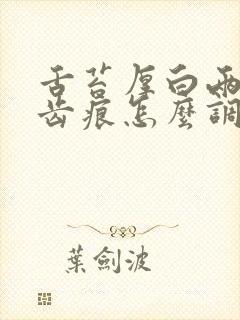 舌苔厚白兩
齿痕怎麼調
葉劍波